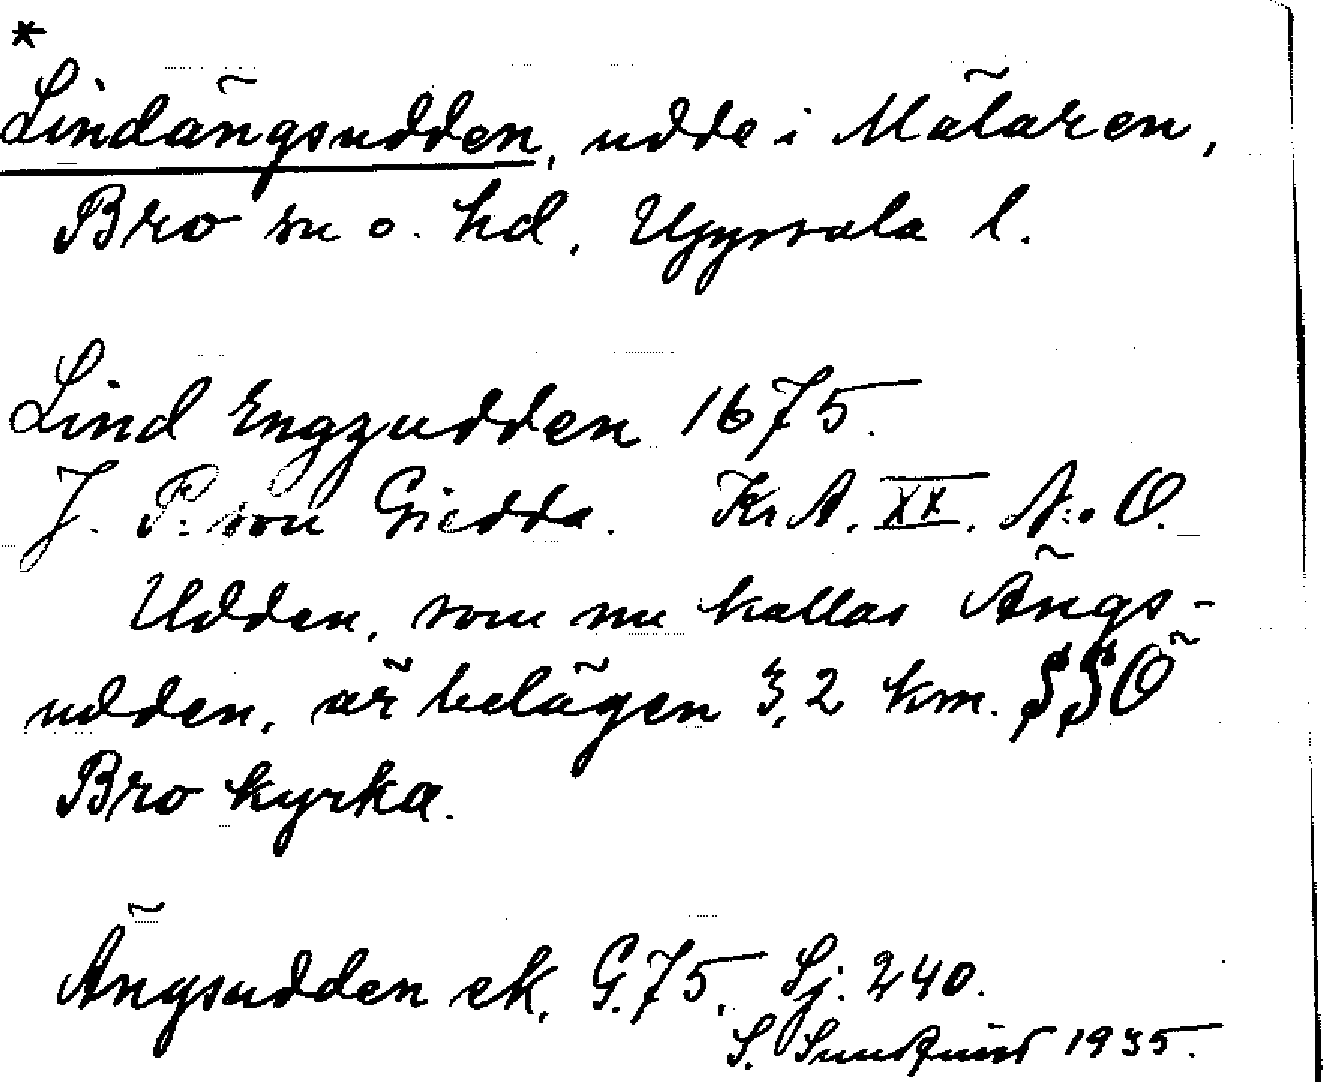 *
Lindängsudden, udde i Mälaren,
Bro sn o. hd, Uppsala l.
Lind Engzudden 1675.
J. P. von Giedda. Kr A. XX. N:o O.
Udden, som nu kallas Ängs-
udden, är belägen 3,2 km. SSÖ
Bro kyrka.
Ängsudden ek. G. 75, Sj. 240.
S. 1935.